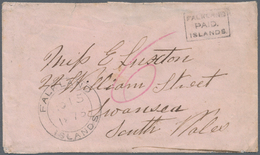 FALKLAND
PAID.
ISLANDS
Miss E Luxton
24 William Street
Swansea
South Wales
6
FALKLAND
ISLANDS